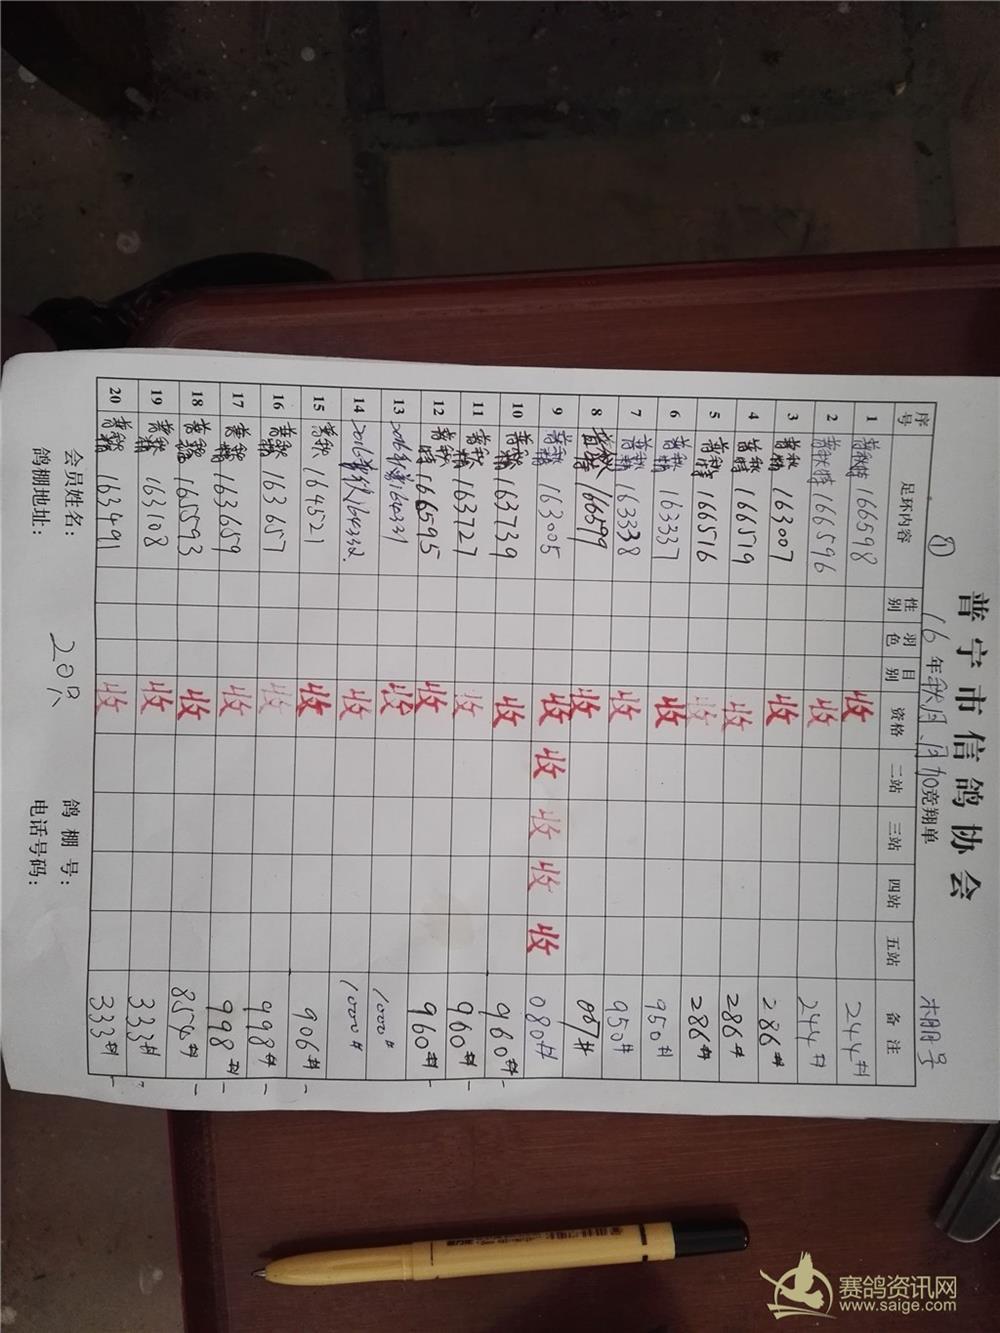 普宁市信鸽协会
① 16年秋 竞翔单 棚号
序号 足环内容 性别 羽色 目别 资格 二站 三站 四站 五站 备注
1 普秋特 166598 收 244#
2 普秋特 166596 收 244#
3 普秋特 163007 收 286#
4 普秋特 166519 收 286#
5 普秋特 166516 收 286#
6 普秋特 163337 收 950#
7 普秋特 163338 收 950#
8 普秋特 166599 收 007#
9 普秋特 163005 收 收 收 收 收 080#
10 普秋特 163739 收 960#
11 普秋特 163727 收 960#
12 普秋特 166595 收 960#
13 2016 164331 收 1000#
14 2016普秋 164332. 收 1000#
15 普秋 164521 收 906#
16 普秋特 163657 收 998#
17 普秋特 163659 收 998#
18 普秋特 165593 收 854#
19 普秋特 163108 收 333#
20 普秋特 163491 收 333#
会员姓名: 20只 鸽棚号:
鸽棚地址: 电话号码:
赛鸽资讯网
www.saige.com